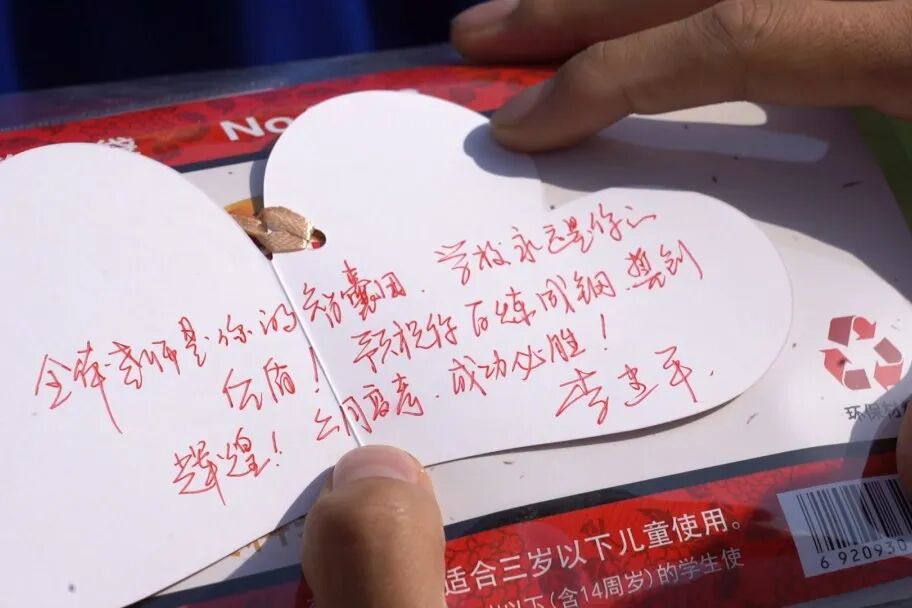 袋 No
全体老师是你的智囊团、学校永远是你
后盾！预祝你百练成钢、到
辉煌！六月高考、成功必胜！
李建平.
环保材
适合三岁以下儿童使用。
以下(含14周岁)的学生使
6 920930